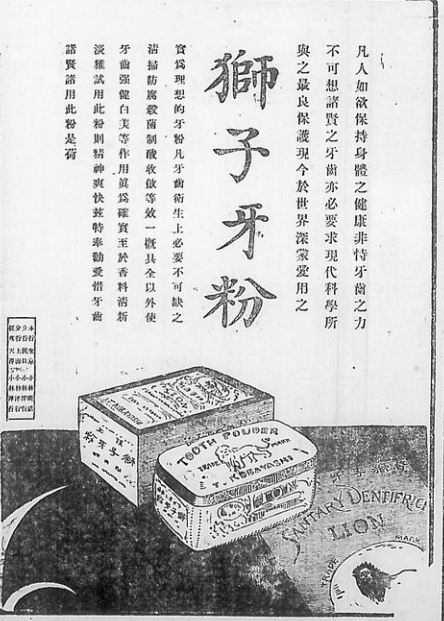 凡人如欲保持身體之健康非恃牙齒之力
不可想諸賢之牙齒亦必要求現代科學所
與之最良保護現今於世界深蒙愛用之
獅子牙粉
實爲理想的牙粉凡牙齒衛生上必要不可缺之
清掃防腐殺菌制酸收斂等效一概具全以外使
牙齒强健白美等作用眞爲確實至於香料清新
淡雅試用此粉則精神爽快茲特奉勸愛惜牙齒
諸賢請用此粉是荷
獅子牙粉
TOOTH POWDER
TRADE MARK
T. KOBAYASHI
LION
SANITARY DENTIFRICE
LION
TRADE MARK